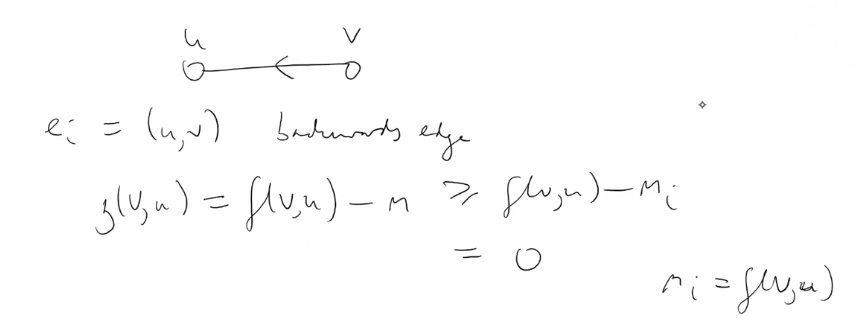 u v
e_i = (u,v) backwards edge
g(v,u) = f(v,u) - m ≥ f(v,u) - m_i
= 0
m_i = f(v,u)